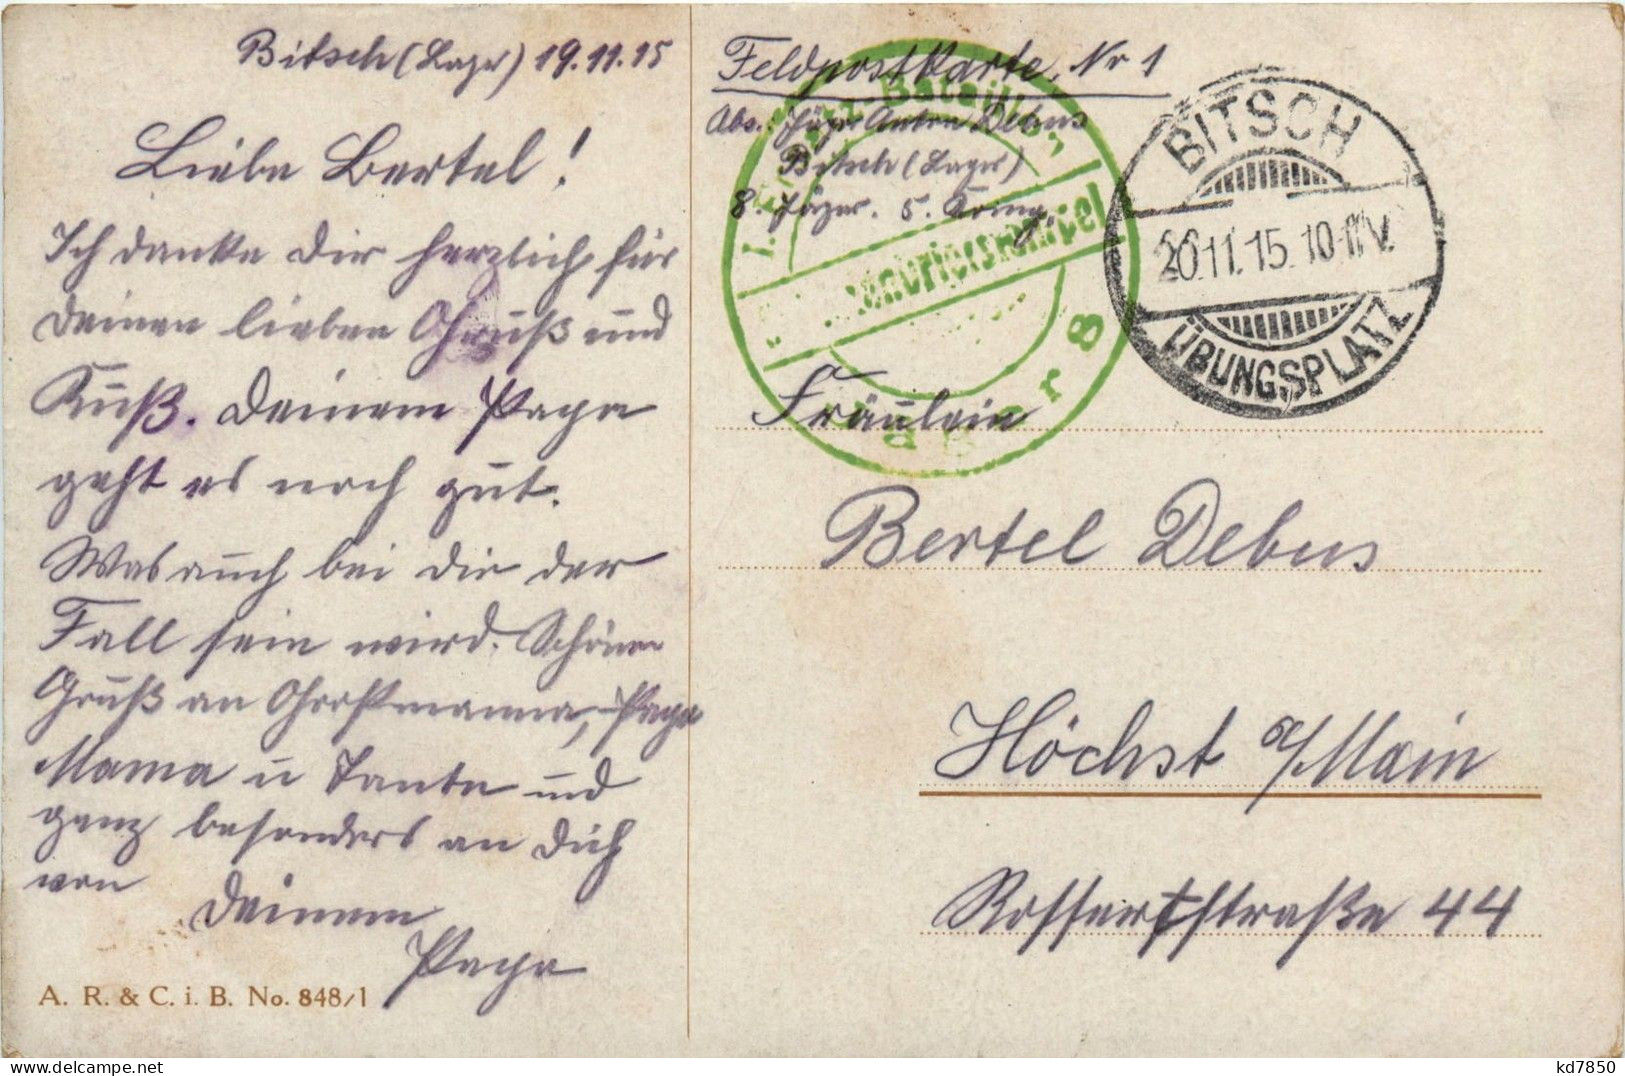 Bitsch (Lager) 19.11.15
Liebe Bertel!
Ich danke Dir herzlich für
Deinen lieben Gruß und
Kuß. Deinem Papa
geht es noch gut.
Was auch bei dir der
Fall sein wird. Schönen
Gruß an Großmama, Papa
Mama u Tante und
ganz besonders an Dich
von Deinem
Papa
A. R. & C. i. B. No. 848/1
Feldpostkarte, Nr 1
Abs.: Jäger Anton Debus
Bitsch (Lager)
8. Jäger. 5. Komp.
Bataillon
Jäger 8
BITSCH
20.11.15. 10-11V.
ÜBUNGSPLATZ
Fräulein
Bertel Debus
Höchst a/Main
Rossertstraße 44
kd7850